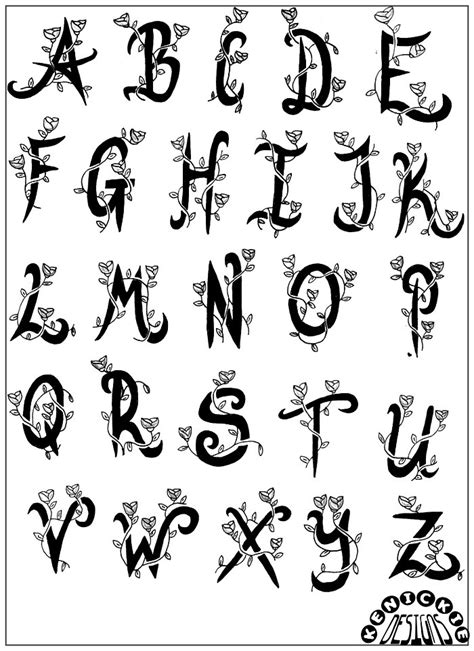 A B C D E
F G H I J K
L M N O P
Q R S T U
V W X Y Z
KENICKIE
DESIGNS